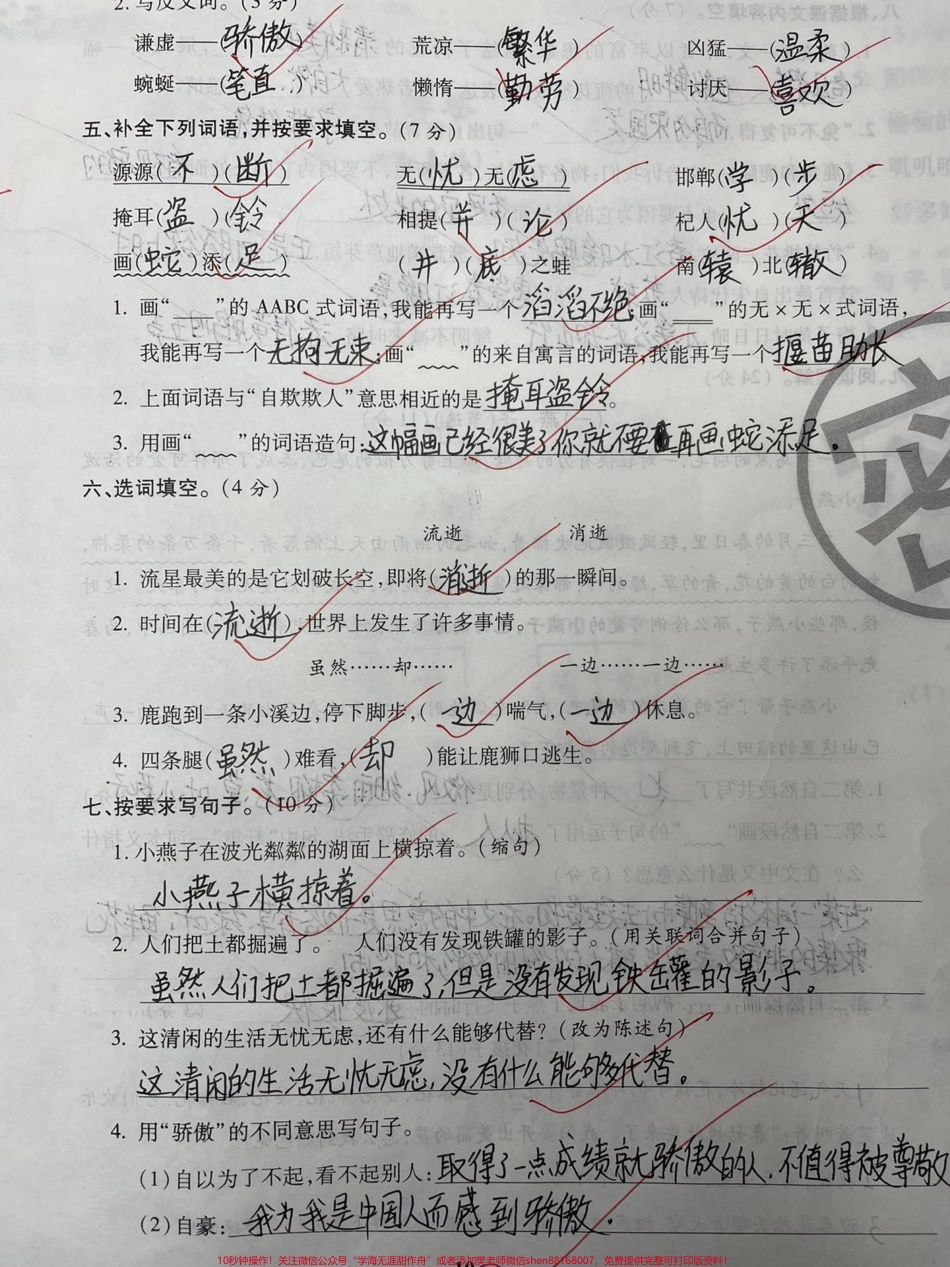 2. 写反义词。(3 分)
谦虚——(骄傲) 荒凉——(繁华) 凶猛——(温柔)
蜿蜒——(笔直) 懒惰——(勤劳) 讨厌——(喜欢)
五、补全下列词语,并按要求填空。(7 分)
源源(不)(断) 无(忧)无(虑) 邯郸(学)(步)
掩耳(盗)(铃) 相提(并)(论) 杞人(忧)(天)
画(蛇)添(足) (井)(底)之蛙 南(辕)北(辙)
1. 画“____”的 AABC 式词语,我能再写一个滔滔不绝;画“____”的无×无×式词语,
我能再写一个无拘无束;画“____”的来自寓言的词语,我能再写一个揠苗助长。
2. 上面词语与“自欺欺人”意思相近的是掩耳盗铃。
3. 用画“____”的词语造句:这幅画已经很美了你就不要再画蛇添足。
六、选词填空。(4 分)
流逝 消逝
1. 流星最美的是它划破长空,即将(消逝)的那一瞬间。
2. 时间在(流逝),世界上发生了许多事情。
虽然……却…… 一边……一边……
3. 鹿跑到一条小溪边,停下脚步,(一边)喘气,(一边)休息。
4. 四条腿(虽然)难看,(却)能让鹿狮口逃生。
七、按要求写句子。(10 分)
1. 小燕子在波光粼粼的湖面上横掠着。(缩句)
小燕子横掠着。
2. 人们把土都掘遍了。 人们没有发现铁罐的影子。(用关联词合并句子)
虽然人们把土都掘遍了,但是没有发现铁罐的影子。
3. 这清闲的生活无忧无虑,还有什么能够代替?(改为陈述句)
这清闲的生活无忧无虑,没有什么能够代替。
4. 用“骄傲”的不同意思写句子。
(1)自以为了不起,看不起别人:取得了一点成绩就骄傲的人,不值得被尊敬
(2)自豪:我为我是中国人而感到骄傲.
密
10秒钟操作!关注微信公众号“学海无涯甜作舟”或者添加樊老师微信shen88168007,免费提供完整可打印版资料!